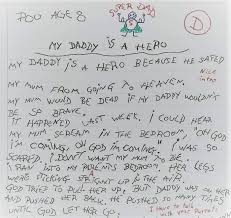 POV AGE 8
SUPER DAD
D
MY DADDY IS A HERO
MY DADDY IS A HERO BECAUSE HE SAVED
Nice intro
MY MUM FROM GOING TO HEAVEN.
MY MUM WOULD BE DEAD IF MY DADDY WOULDN'T
BE SO BRAVE.
IT HAPPENED LAST WEEK. I COULD HEAR
MY MUM SCREAM IN THE BEDROOM, "OH GOD
I'M COMING, OH GOD I'M COMING" I WAS SO
SCARED. I DON'T WANT MY MUM TO DIE.
I RAN INTO MY PARENTS BEDROOM. HER LEGS
WERE UP IN THE AIR AND
GOD TRIED TO PULL HER UP. BUT DADDY WAS ON HER
AND PUSHED HER BACK. HE PUSHED SO MANY TIMES
UNTIL GOD LET HER GO.
I have to talk
with your parents